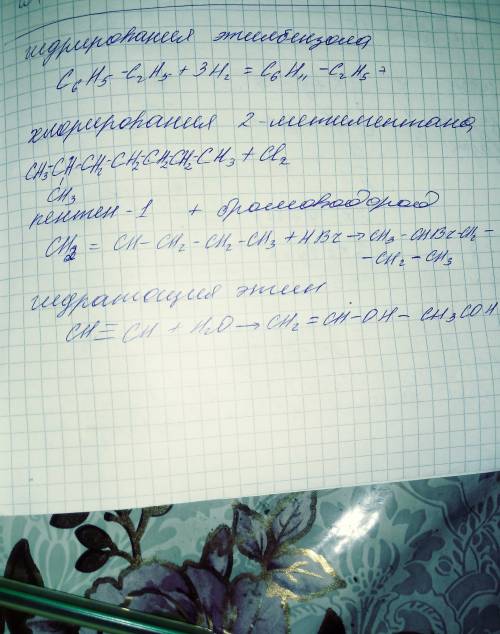 гидрирования этилбензола
C6H5-C2H5+3H2=C6H11-C2H5
хлорирования 2-метилгептана
CH3-CH-CH2-CH2-CH2CH2-CH3+Cl2
CH3
пентен-1 + бромоводород
CH2=CH-CH2-CH2-CH3+HBr→CH3-CHBr-CH2-
-CH2-CH3
гидратация этин
CH≡CH+H2O→CH2=CH-OH-CH3COH